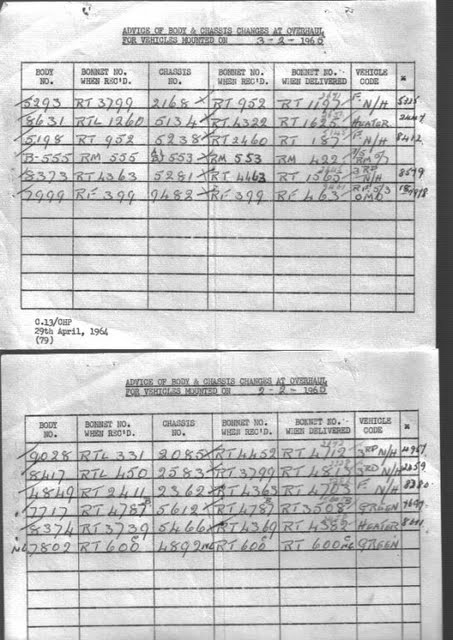 ADVICE OF BODY & CHASSIS CHANGES AT OVERHAUL
FOR VEHICLES MOUNTED ON 3-2-1966
BODY NO. BONNET NO. WHEN REC'D. CHASSIS NO. BONNET NO. WHEN REC'D. BONNET NO. WHEN DELIVERED VEHICLE CODE *
5293 RT 3799 2168 RT 952 RT 1197 F N/H
8631 RTL 1260 5134 RT 4322 RT 1625 HEATER
5198 RT 952 5238 RT 2460 RT 187 F N/H 8412
B-555 RM 555 553 RM 553 RM 422
8373 RT 4363 5281 RT 4463 RT 1565 3RD N/H 8579
7999 RF 399 9482 RF 399 RF 463 OMO
C.13/CHP
29th April, 1964
(79)
ADVICE OF BODY & CHASSIS CHANGES AT OVERHAUL
FOR VEHICLES MOUNTED ON 2-2-1966
BODY NO. BONNET NO. WHEN REC'D. CHASSIS NO. BONNET NO. WHEN REC'D. BONNET NO. WHEN DELIVERED VEHICLE CODE *
9028 RTL 331 2085 RT 4452 RT 4712 3RD N/H
8417 RTL 450 2583 RT 3799 3RD N/H 2259
4849 RT 2411 2362 RT 4363 F N/H 8280
7717 RT 4787 5612 RT 4787 RT 3508 GREEN
8374 RT 3739 5466 RT 4369 RT 4382 HEATER
NC 7802 RT 600 4892 NC RT 600 RT 600 NC GREEN